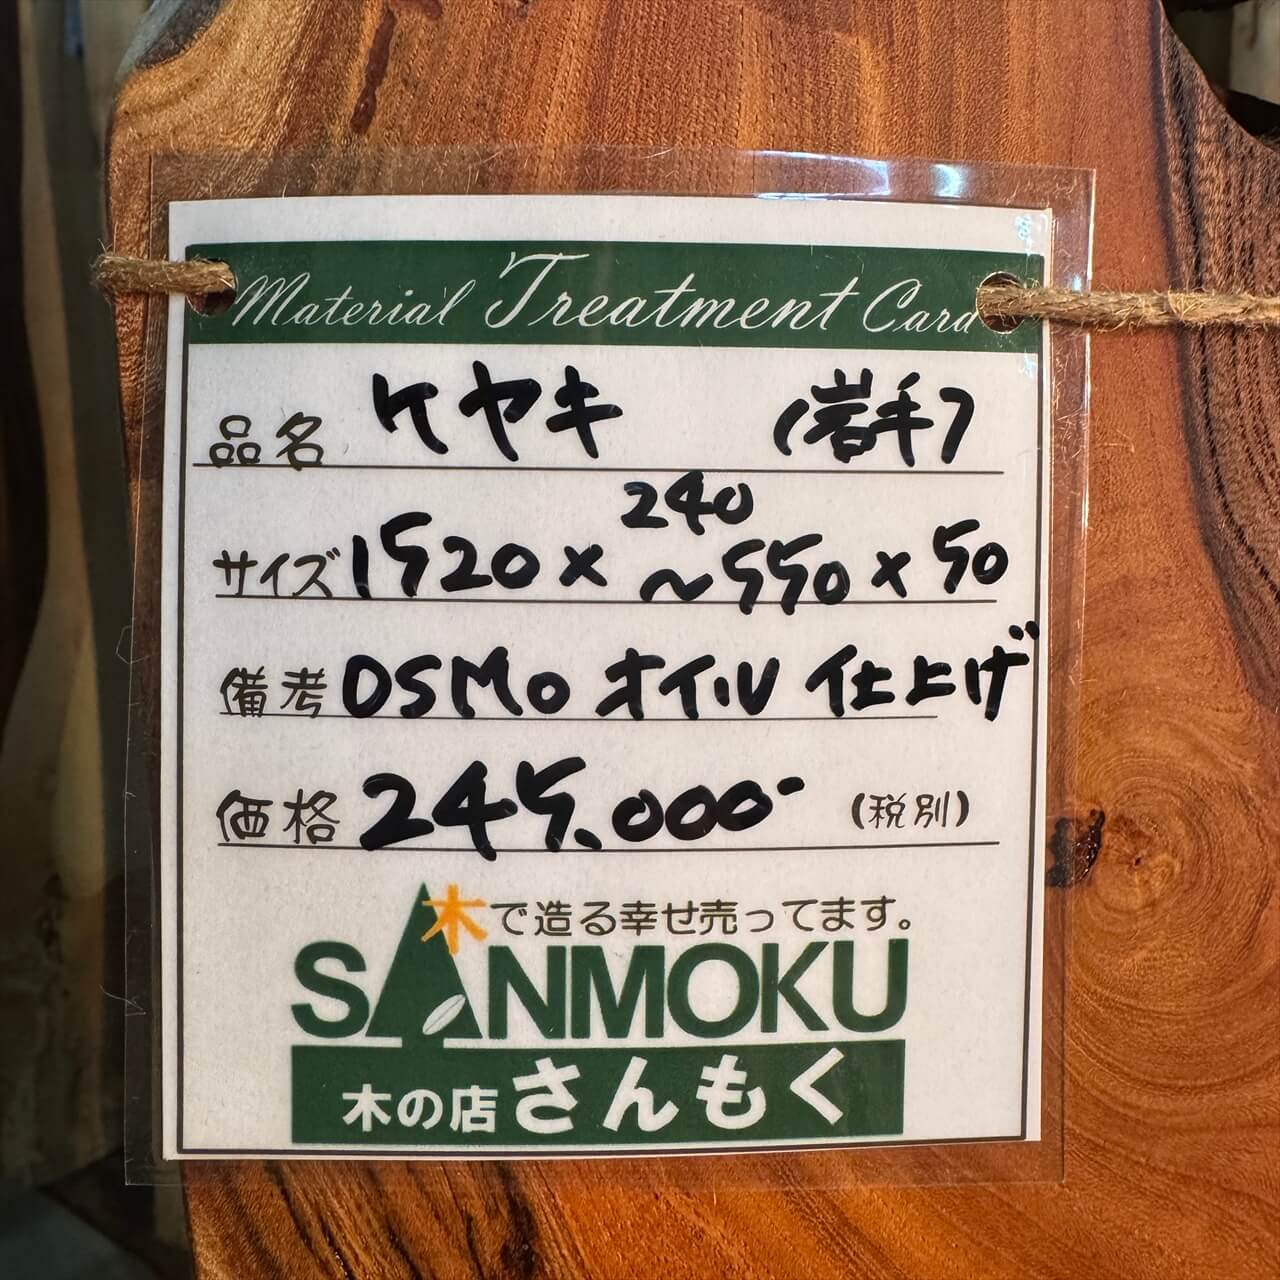 Material Treatment Card
品名 ケヤキ (岩手)
サイズ 1520 × 240 ~550 × 50
備考 OSMO オイル 仕上げ
価格 245,000- (税別)
木で造る幸せ売ってます。
SANMOKU
木の店 さんもく